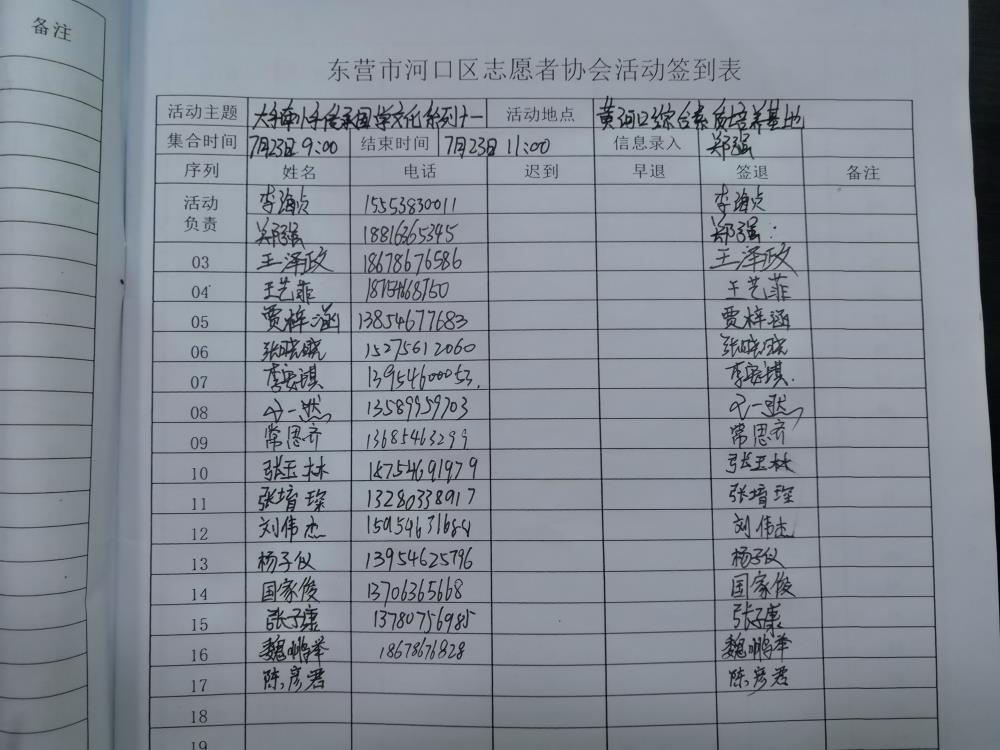 备注
东营市河口区志愿者协会活动签到表
活动主题 大手牵小手传承国学文化系列十一 活动地点 黄河口综合素质培养基地
集合时间 7月23日 9:00 结束时间 7月23日 11:00 信息录入 郑强
序列 姓名 电话 迟到 早退 签退 备注
活动负责 李海贞 15553830011 李海贞
郑强 18816365345 郑强
03 王泽政 18678676586 王泽政
04 王艺菲 王艺菲
05 贾梓涵 13854677683 贾梓涵
06 张晓晓 15275612060 张晓晓
07 李安琪 13954600053 李安琪
08 一然 13589959703 一然
09 常思齐 13685463299 常思齐
10 张玉林 18754691979 张玉林
11 张培琛 13280338917 张培琛
12 刘伟杰 15915463168 刘伟杰
13 杨子仪 13954625796 杨子仪
14 国家俊 13706365668 国家俊
15 张子康 13780756985 张子康
16 魏鹏举 18678676828 魏鹏举
17 陈彦君 陈彦君
18
19